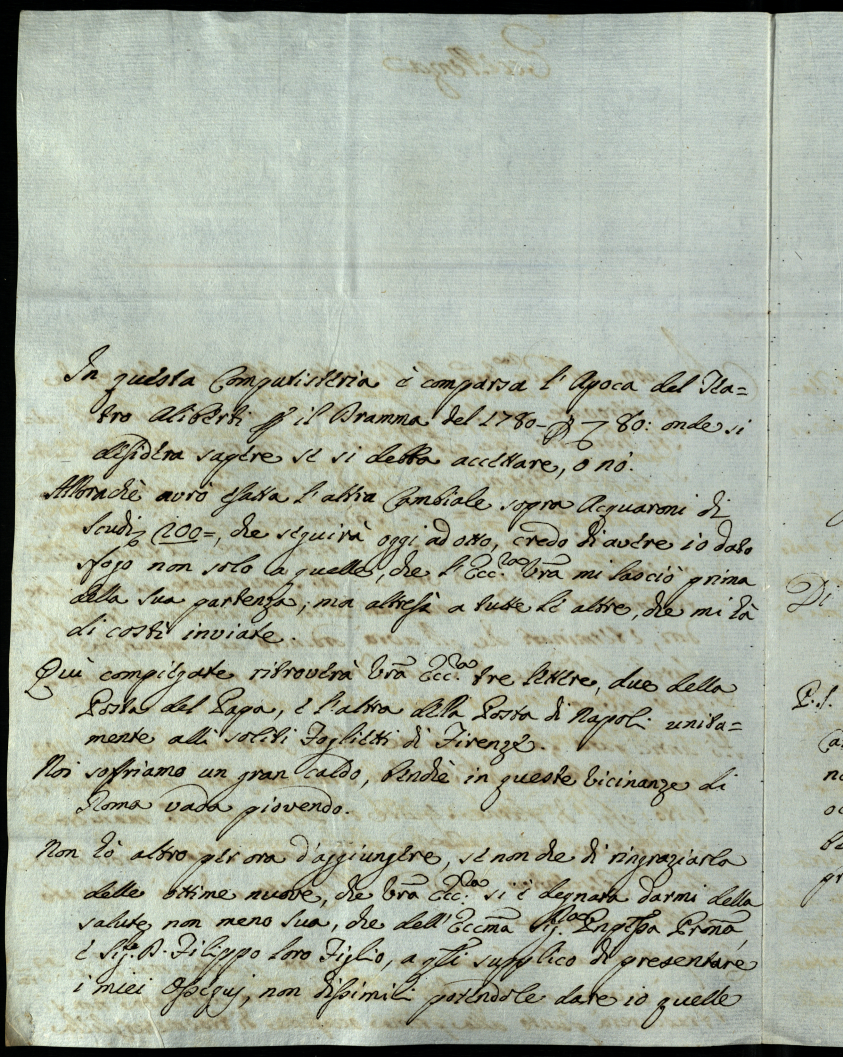 In questa Computisteria è comparsa l'Apoca del Tea=
tro Aliberti p il Dramma del 1780 80: onde si
desidera sapere se si debba accettare, o nò.
Allorachè avrò esatta l'altra Cambiale sopra Acquaroni di
Scudi 200=, che seguirà oggi ad otto, credo di avere io dato
sfogo non solo a quelle, che l'Ecc.za Vrã mi lasciò prima
della sua partenza, ma altresì a tutte le altre, che mi hà
di costì inviate.
Quì compiegate ritroverà Vrã Ecc.za tre lettere, due della
Posta del Papa, e l'altra della Posta di Napoli unita=
mente alli soliti Foglietti di Firenze.
Noi soffriamo un gran caldo, benchè in queste vicinanze di
Roma vada piovendo.
Non hò altro per ora d'aggiungere, se non che di ringraziarla
delle ottime nuove, che Vrã Ecc.za si è degnata darmi della
salute non meno sua, che dell'Eccma Sig.ra Pñpessa Prõna,
e Sig.r D. Filippo loro Figlio, a qli supplico di presentare
i miei Ossequj, non dissimili potendole dare io quelle
Di
P.S.